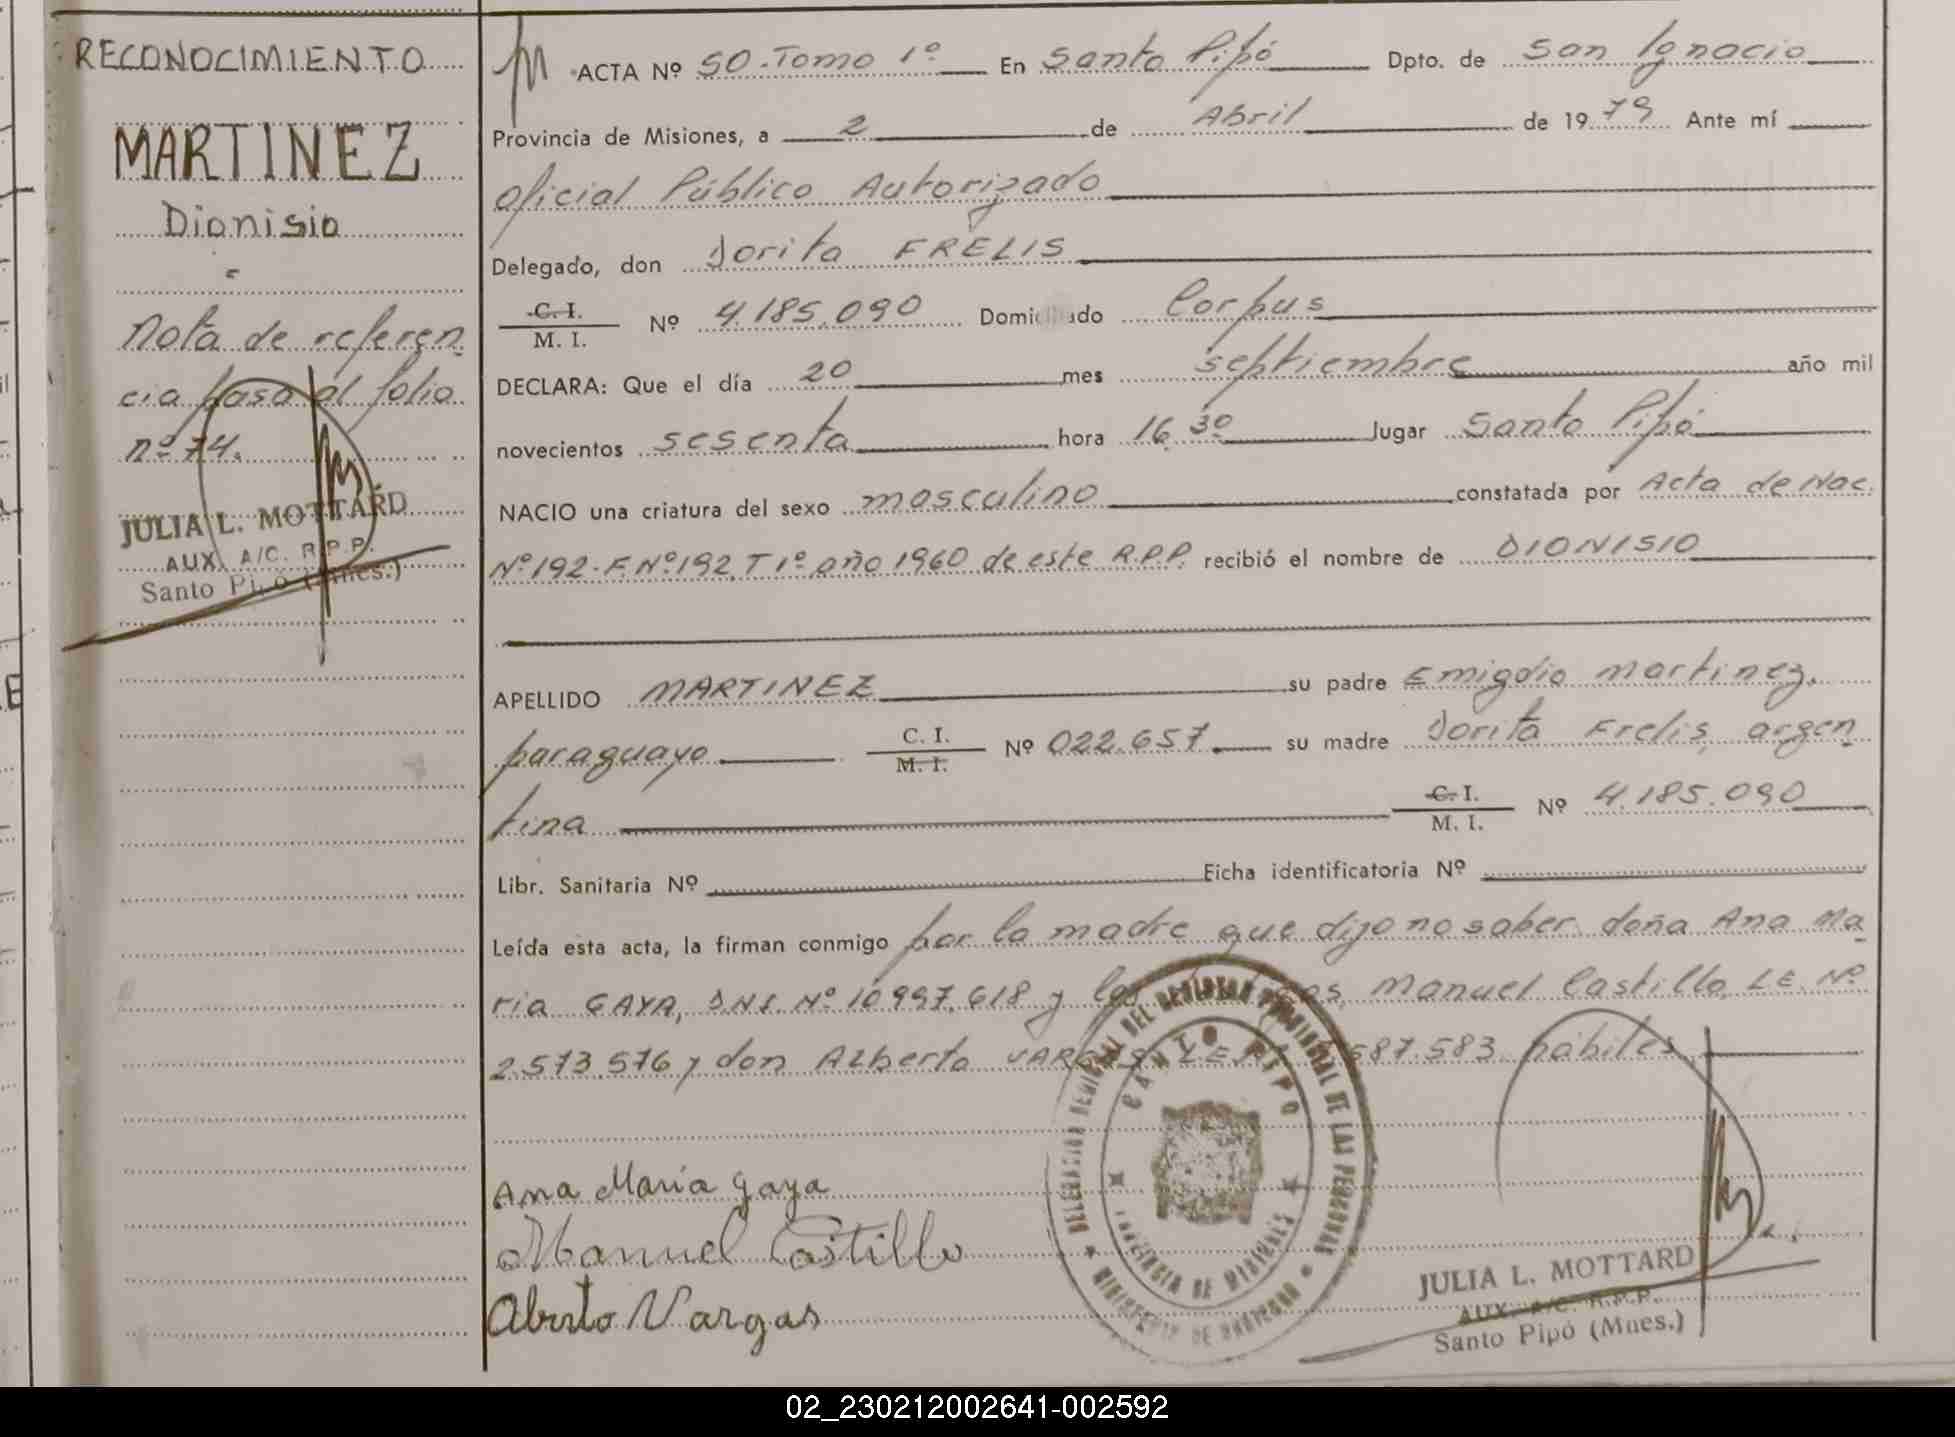 RECONOCIMIENTO
MARTINEZ
Dionisio
Nota de referen
cia pasa al folio
nº 74.
JULIA L. MOTTARD
AUX. A/C. R.P.P.
Santo Pipó (Mnes.)
ACTA Nº 50. Tomo 1º En Santo Pipó Dpto. de San Ignacio
Provincia de Misiones, a 2 de Abril de 1979 Ante mí
Oficial Público Autorizado
Delegado, don Dorita FRELIS
C. I. / M. I. Nº 4.185.090 Domiciliado Corpus
DECLARA: Que el día 20 mes septiembre año mil
novecientos sesenta hora 16,30 Jugar Santo Pipó
NACIO una criatura del sexo masculino constatada por Acta de Nac.
Nº 192. F. Nº 192, T 1º año 1960 de este R.P.P. recibió el nombre de DIONISIO
APELLIDO MARTINEZ su padre Emigdio Martinez.
paraguayo C. I. / M. I. Nº 022.657 su madre Dorita Frelis, argen
tina C. I. / M. I. Nº 4.185.090
Libr. Sanitaria Nº Ficha identificatoria Nº
Leída esta acta, la firman conmigo por la madre que dijo no saber doña Ana Ma
ria GAYA, D.N.I. Nº 10.997.618 y los Manuel Castillo, LE. Nº
2.573.576 y don Alberto VARGAS, LE 587.583 hábiles
Ana María Gaya
Manuel Castillo
Abrto Vargas
DELEGACION DEL REGISTRO PROVINCIAL DE LAS PERSONAS
SANTO PIPO
PROVINCIA DE MISIONES
MINISTERIO DE GOBIERNO
JULIA L. MOTTARD
AUX. A/C. R.P.P.
Santo Pipó (Mnes.)
02_230212002641-002592